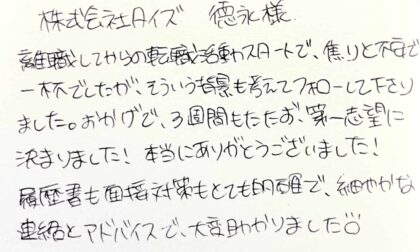 株式会社アイズ 徳永様
離職してからの転職活動スタートで、焦りと不安で
一杯でしたが、そういう背景も考えてフォローして下さり
ました。おかげで、3週間もたたず、第一志望に
決まりました!本当にありがとうございました!
履歴書も面接対策もとても的確で、細やかな
連絡とアドバイスで、大変助かりました